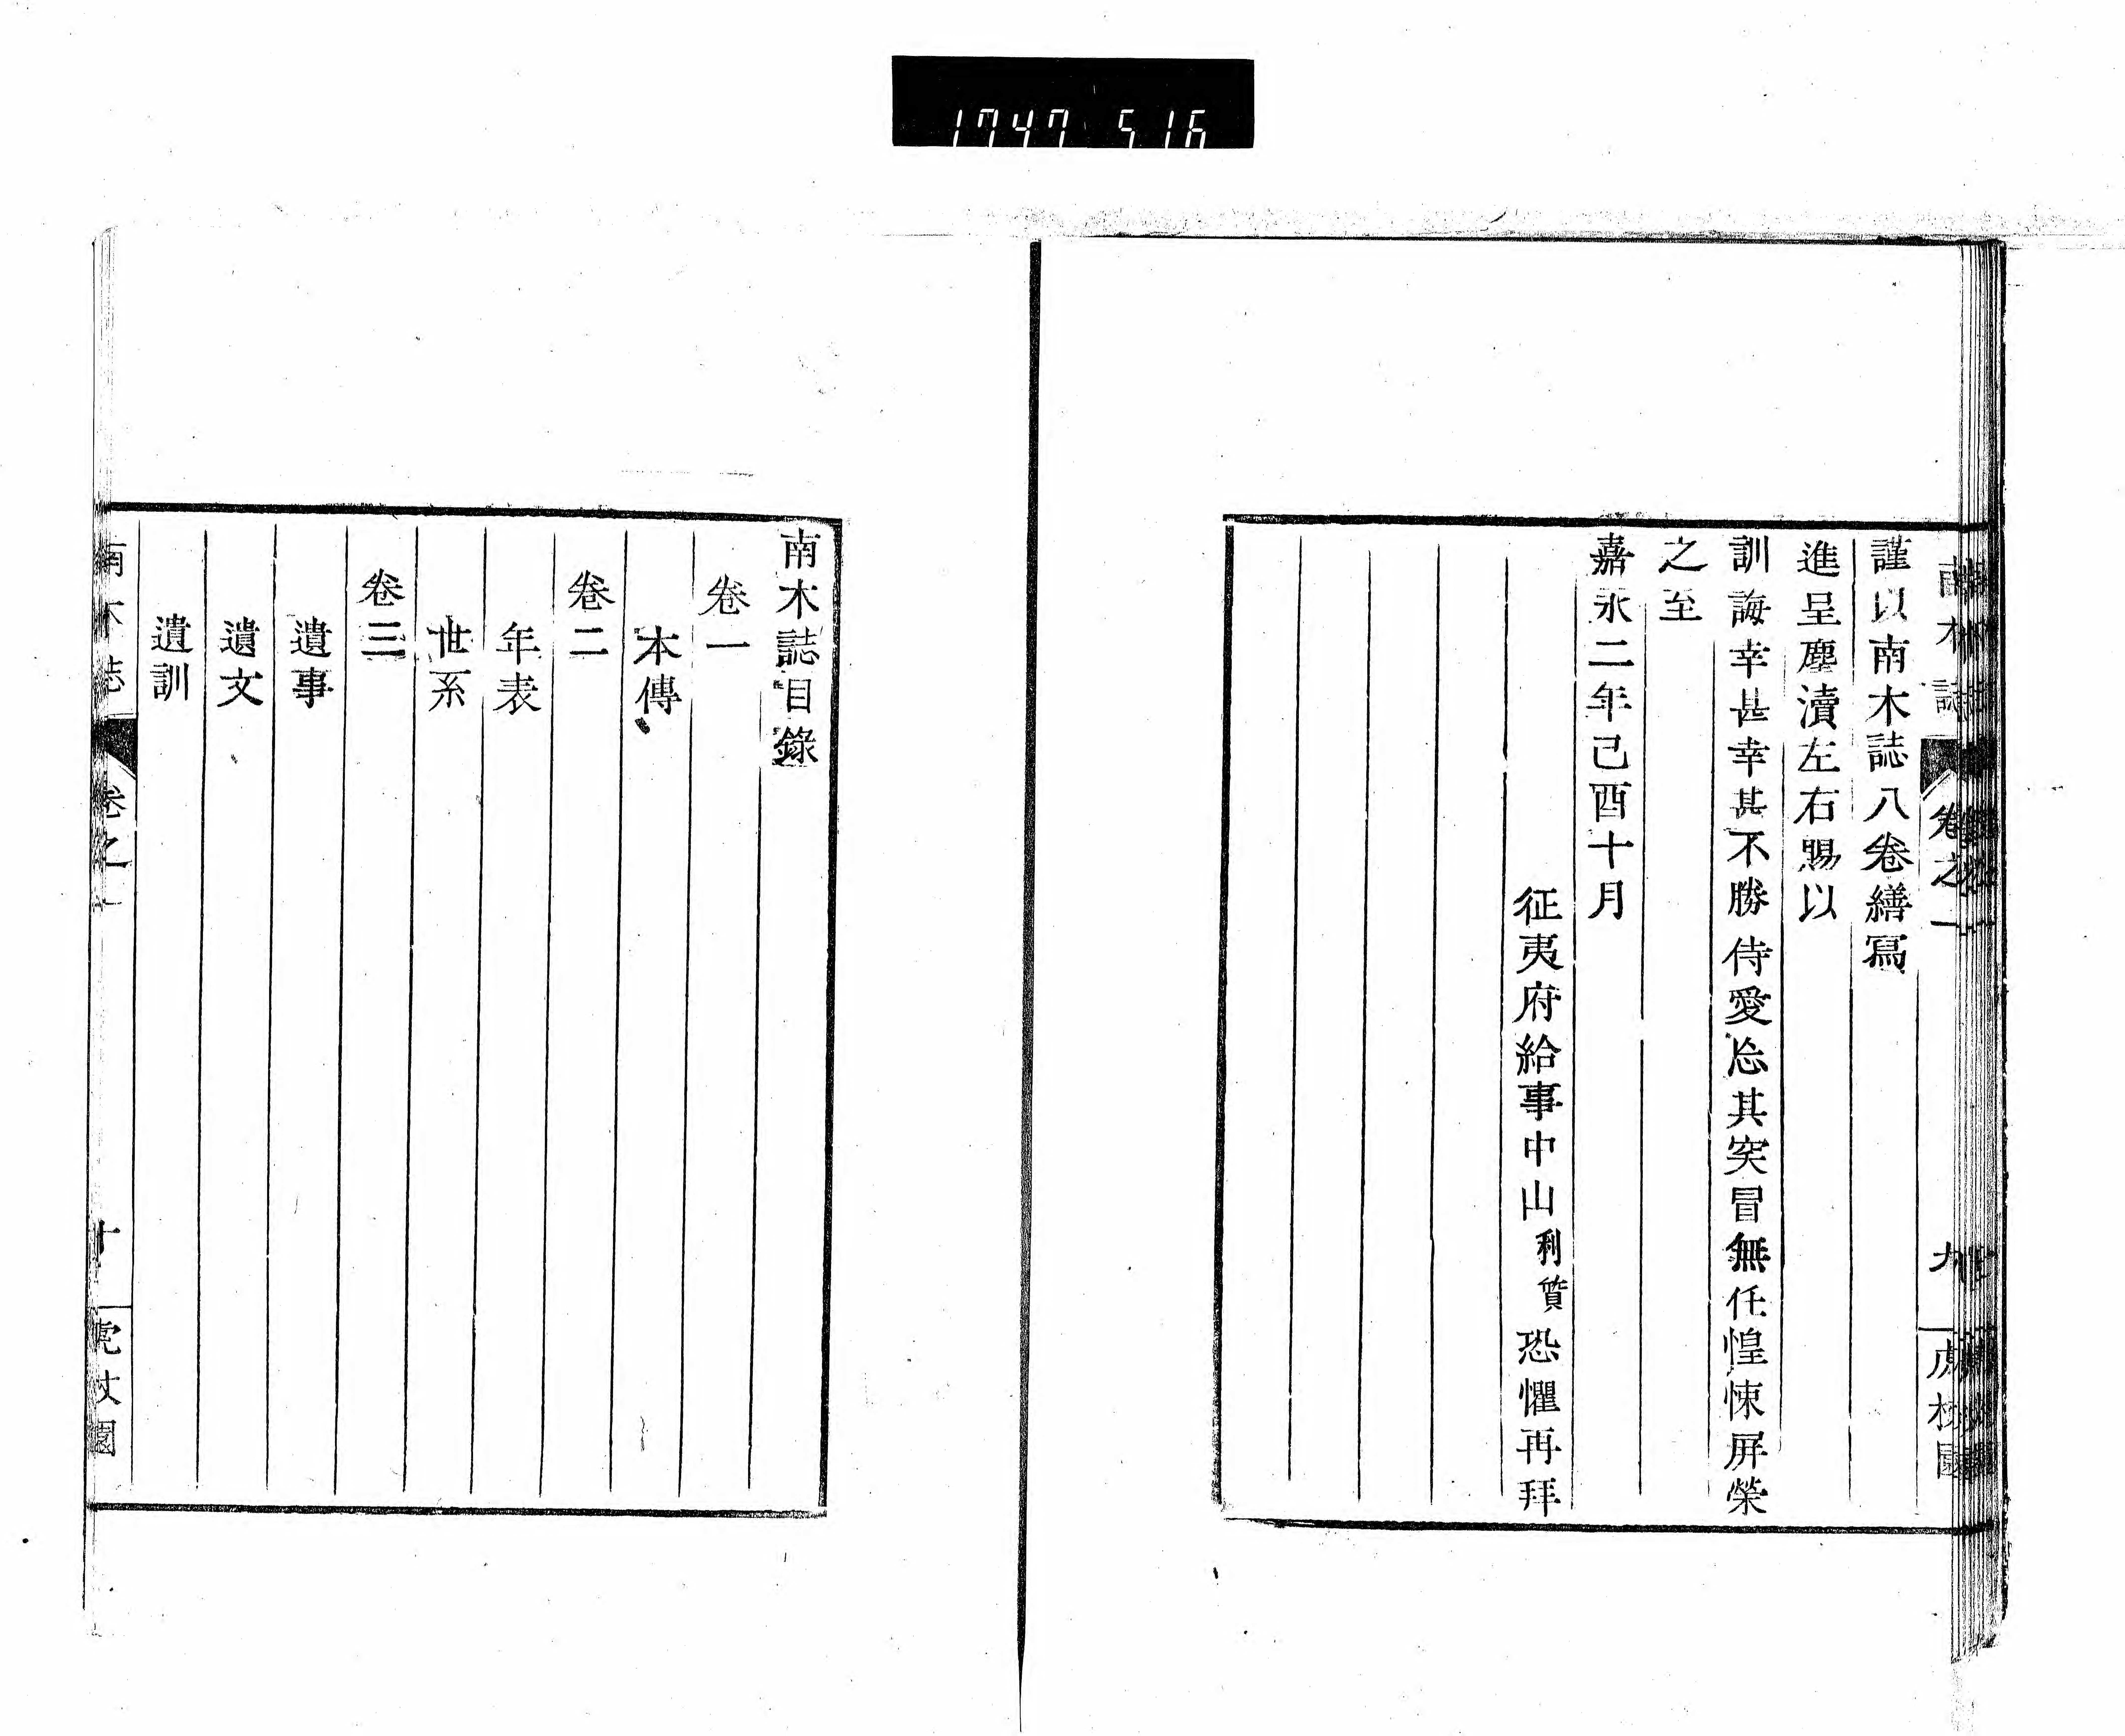 1747 516
南木誌
卷之一
九
謹以南木誌八卷繕寫
進呈塵瀆左右賜以
訓誨幸甚幸甚不勝侍愛忘其突冒無任惶悚屏榮
之至
嘉永二年己酉十月
征夷府給事中山利質恐懼再拜
南木誌目錄
卷一
本傳
卷二
年表
世系
卷三
遺事
遺文
遺訓
南木誌
卷之一
十